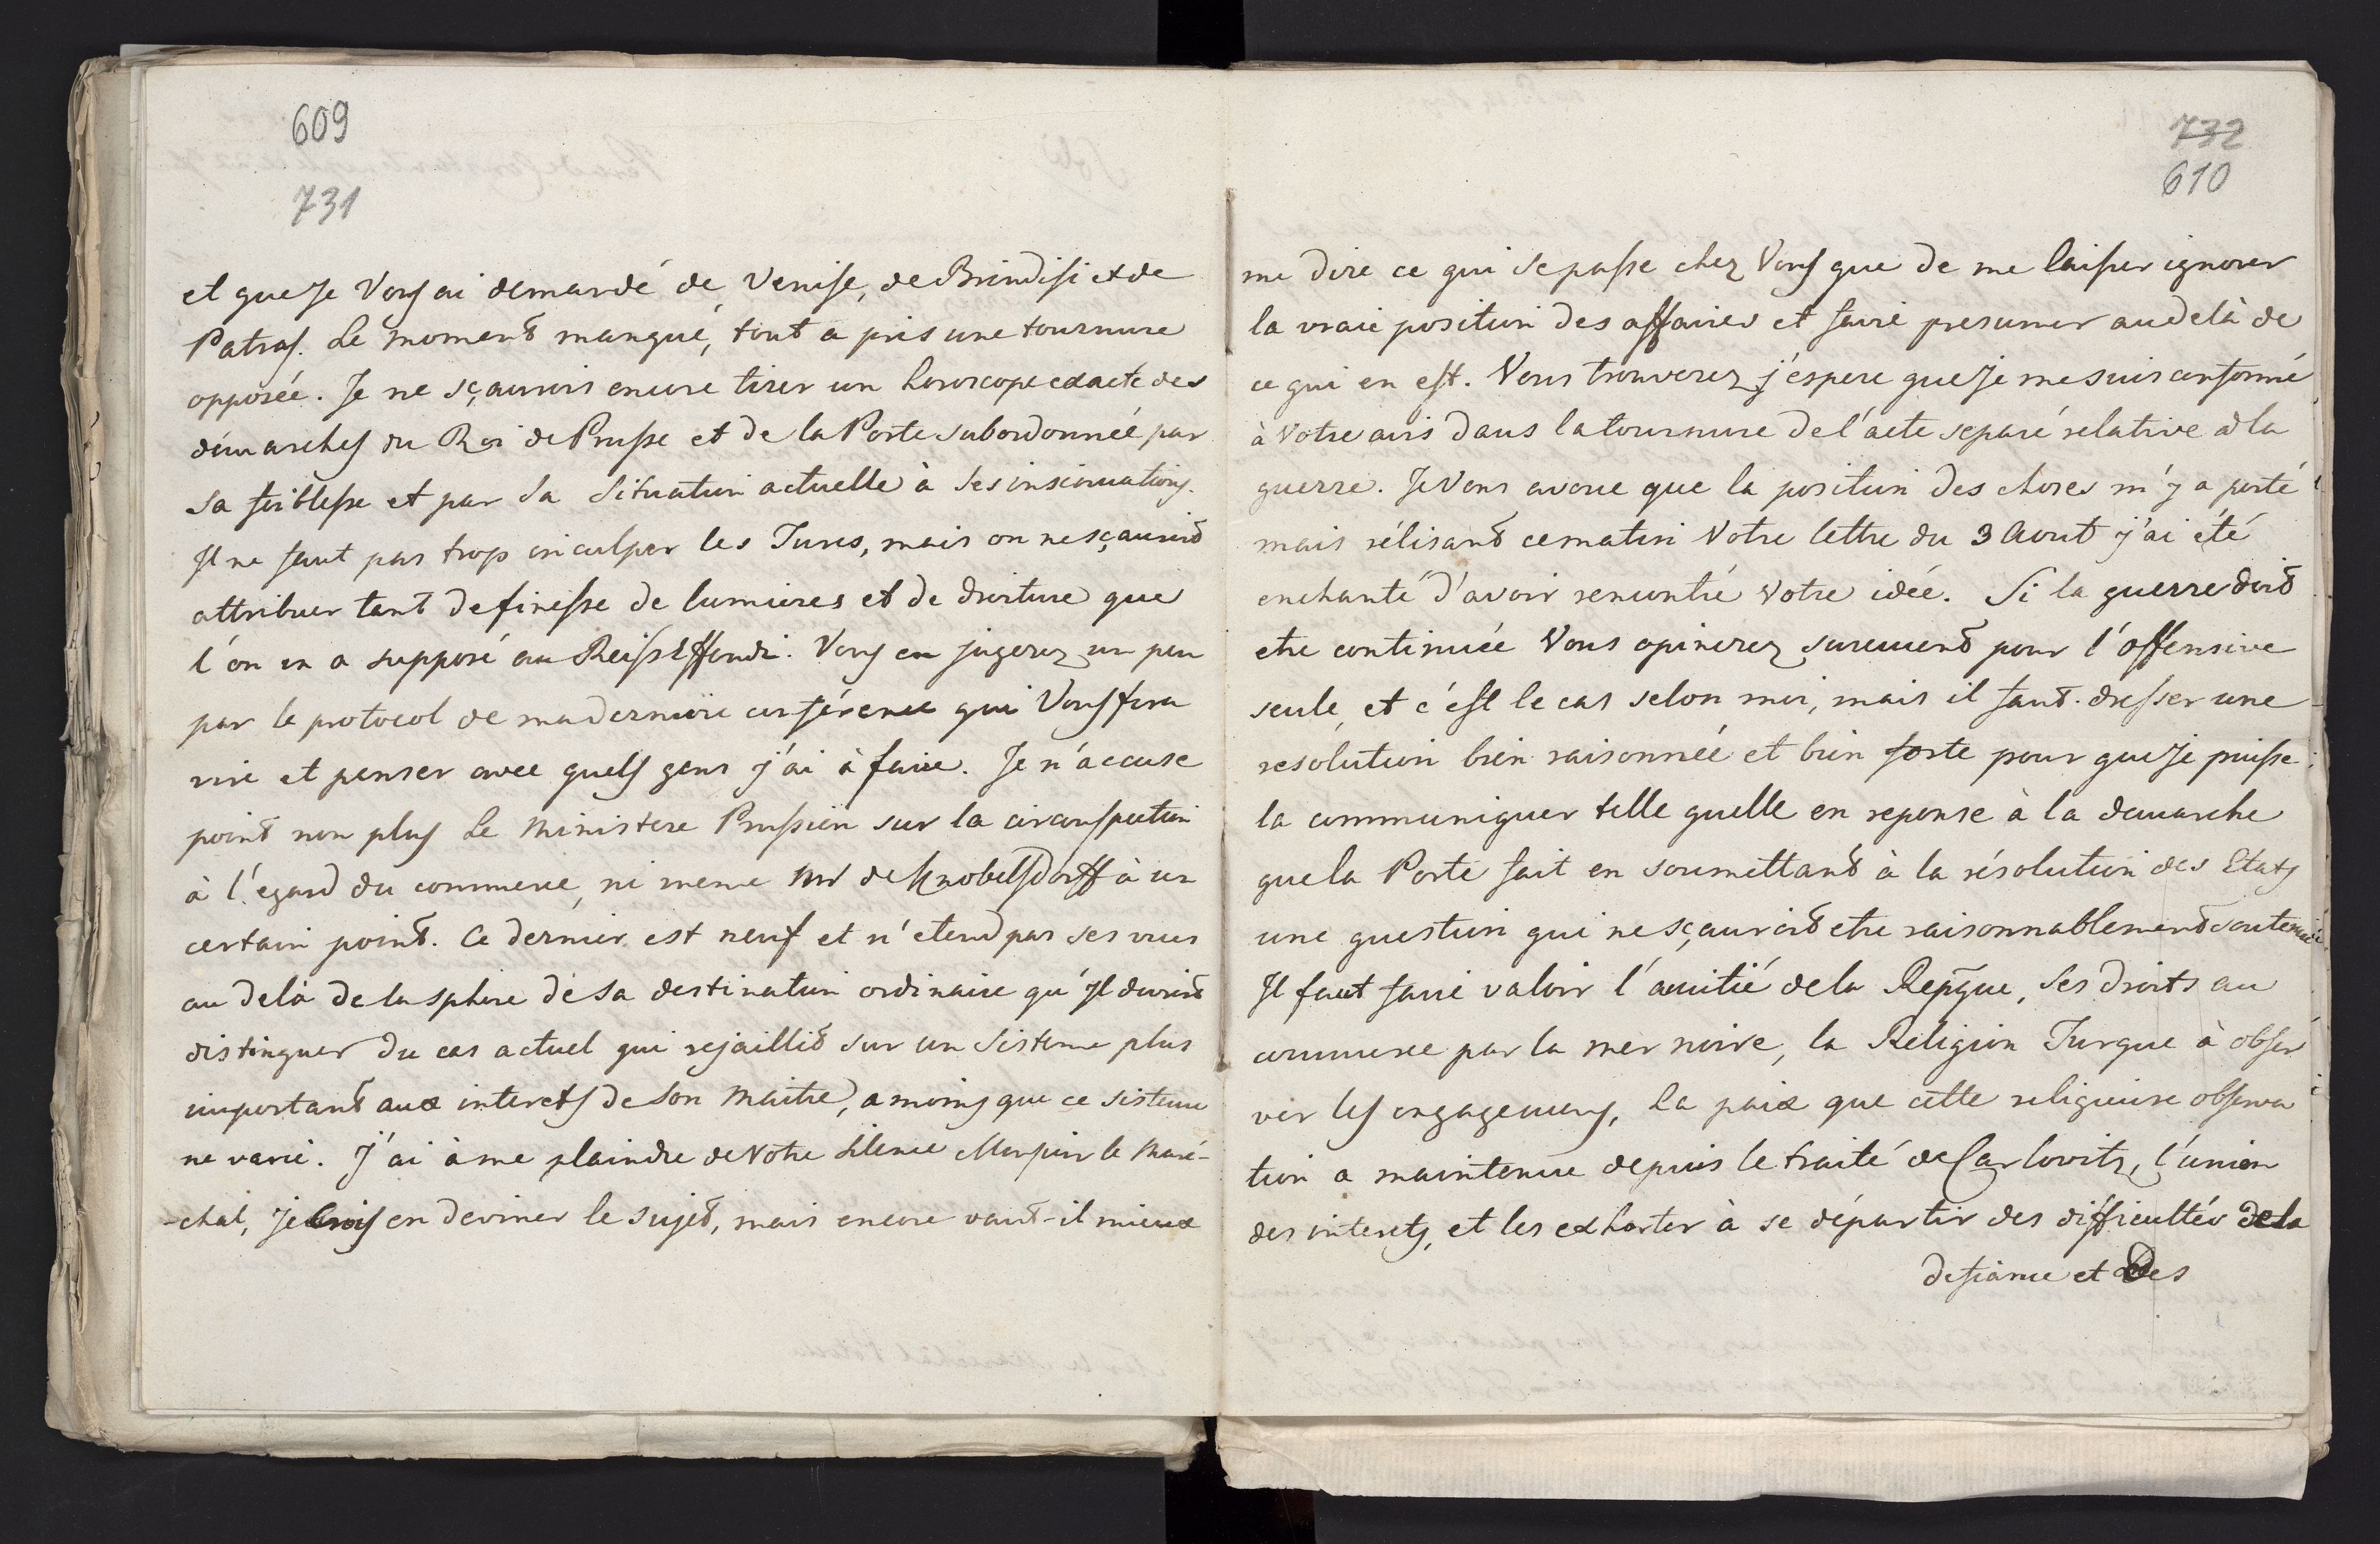 609
731
et que Je Vous ai demandé de Venise, de Brindisi et de
Patras. Le moment manqué, tout a pris une tournure
opposée. Je ne sçaurois encore tirer un horoscope exacte des
démarches du Roi de Prusse et de la Porte subordonnée par
sa foiblesse et par sa situation actuelle à ses insinuations.
Il ne faut pas trop inculper les Turcs, mais on ne sçauroit
attribuer tant de finesse de lumieres et de droiture que
l'on en a supposé au Reiss Effendi. Vous en jugerez un peu
par le protocol de ma derniere conférence qui Vous fera
rire et penser avec quels gens j'ai à faire. Je n'accuse
point non plus le Ministere Prussien sur la circonspection
à l'egard du commerce, ni meme Mr de Knobelsdorff à un
certain point. Ce dernier est neuf et n'etend pas ses vues
au delà de la sphere de sa destination ordinaire qu'Il devroit
distinguer du cas actuel qui rejaillit sur un Sisteme plus
important aux interets de Son Maitre, a moins que ce sisteme
ne varie. J'ai à me plaindre de Votre silence Monsieur le Maré-
-chal, Je crois en deviner le sujet, mais encore vaut-il mieux
732
610
me dire ce qui se passe chez Vous que de me laisser ignorer
la vraie position des affaires et faire presumer au delà de
ce qui en est. Vous trouverez j'espere que Je me suis conformé
à Votre avis dans la tournure de l'acte separé relative à la
guerre. Je Vous avoue que la position des choses m'y a porté
mais rélisant ce matin Votre lettre du 3 Aout j'ai été
enchanté d'avoir rencontré Votre idée. Si la guerre doit
etre continuée Vous opinerez surement pour l'offensive
seule, et c'est le cas selon moi, mais il faut dresser une
resolution bien raisonnée et bien forte pour que Je puisse
la communiquer telle quelle en reponse à la demarche
que la Porte fait en soumettant à la résolution des Etats
une question qui ne sçauroit etre raisonnablement soutenue
Il faut faire valoir l'amitié de la Repque, ses droits au
commerce par la mer noire, la Religion Turque à obser
ver les engagemens, la paix que cette religieuse observa
tion a maintenue depuis le traité de Carlovitz, l'union
des interets, et les exhorter à se départir des difficultés de la
defiance et des